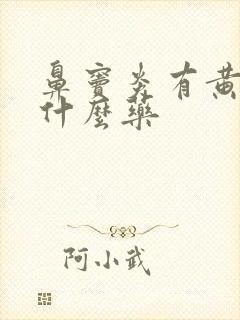 鼻窦炎有黄
什麼藥
阿小武